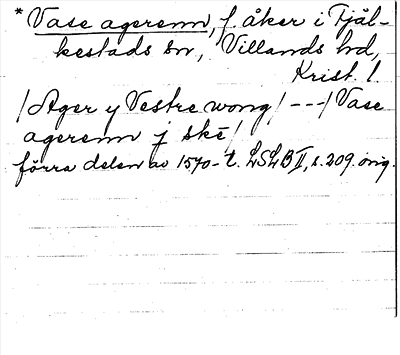 * Vase agerenn, f. åker i Fjäl-
kestads sn, Villands hd,
Krist. l.
/Ager y Vestre wong/ ---/ Vase
agerenn j skē/
förra delen av 1570-t. LSLB II, s. 209. orig.